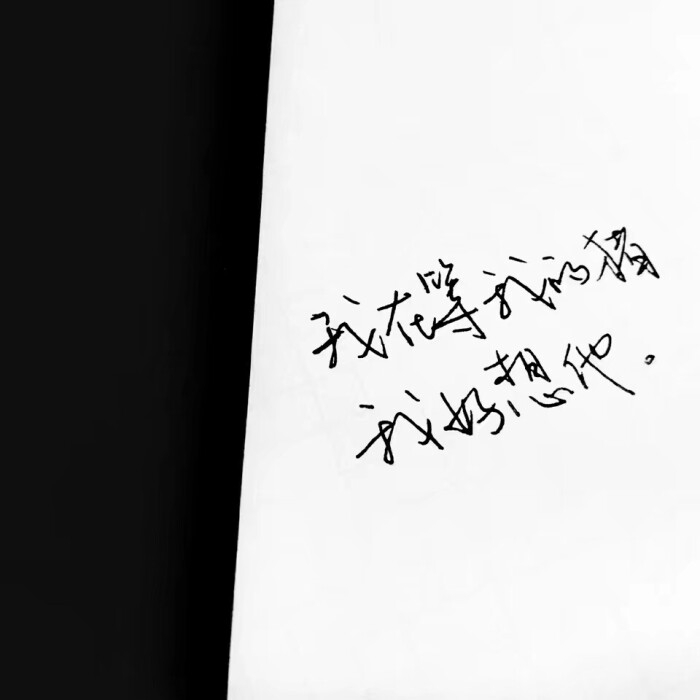 我在等我的猫
我好想他。